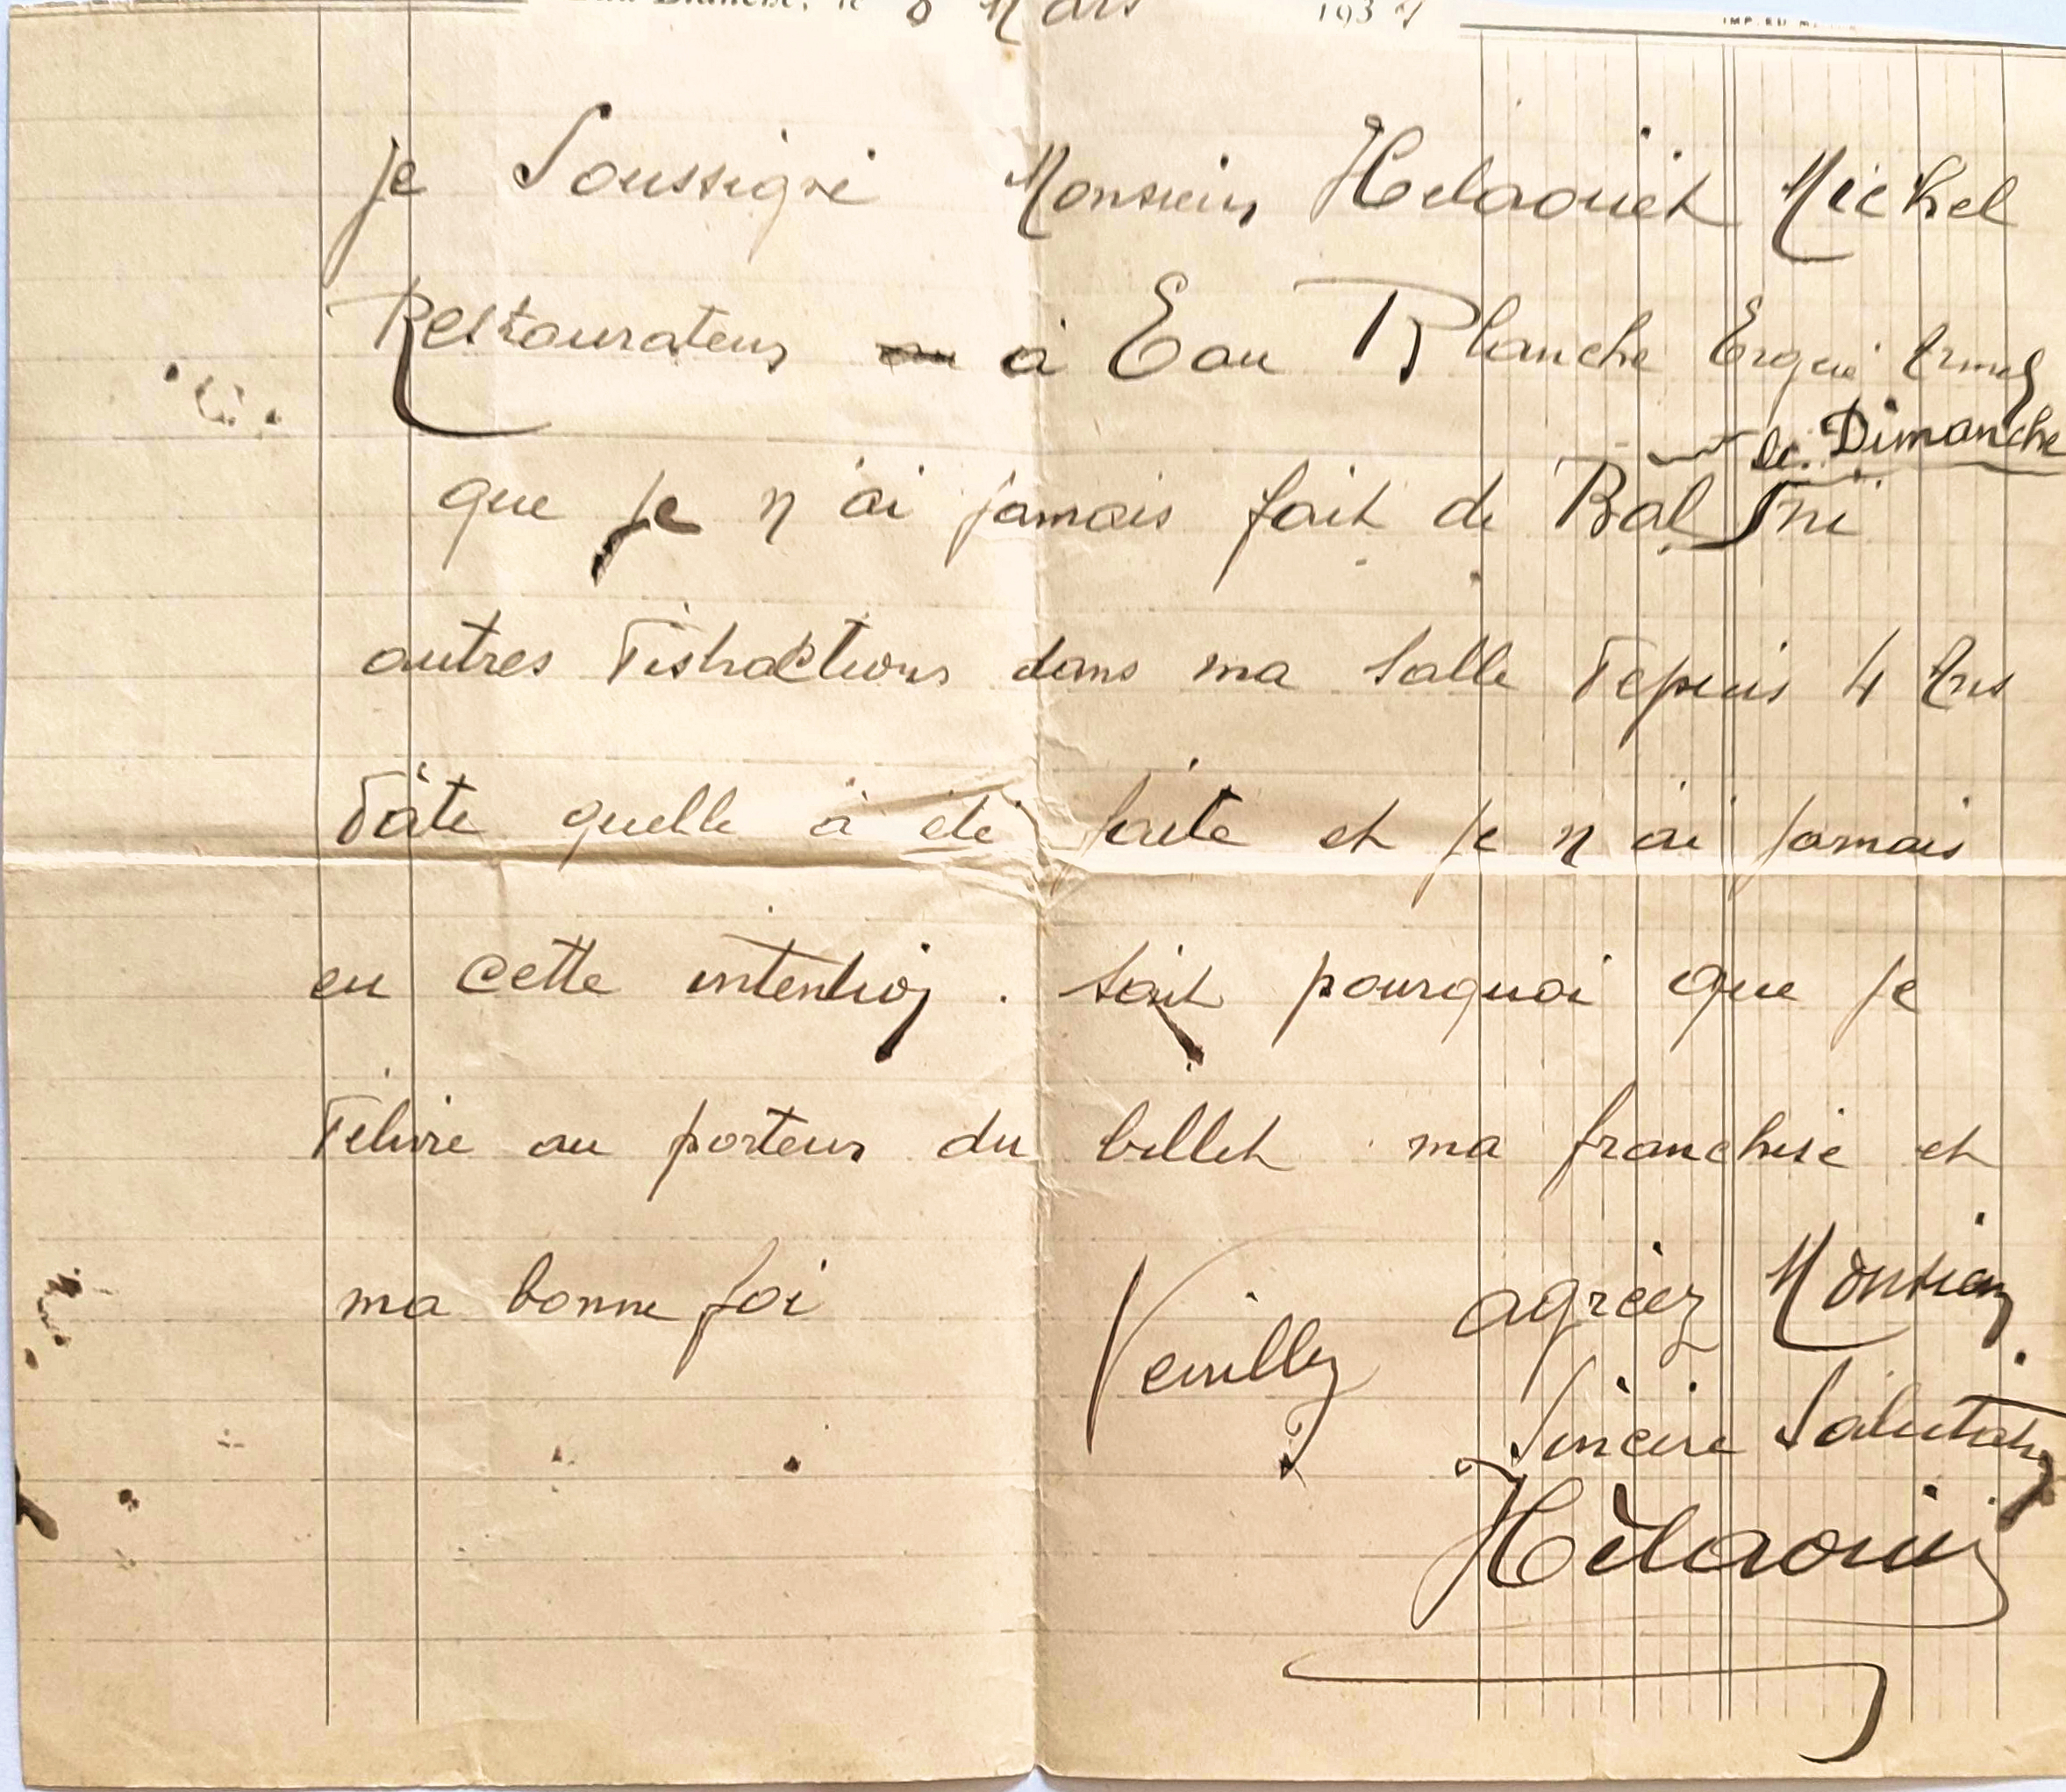 Eau Blanche, le 8 Mars 193
je Soussigné Monsieur Hélaouët Michel
Restaurateur au à Eau Blanche Ergué Armel
le Dimanche
que je n'ai jamais fait de Bal Ni
autres Distractions dans ma Salle Depuis 4 Ans
Dâte quelle à été faite et je n'ai jamais
eu cette intention . Sait pourquoi que je
Délivre au porteur du billet ma franchise et
ma bonne foi
Veuillez agréez Monsieur
Sincère Salutations
Hélaouët